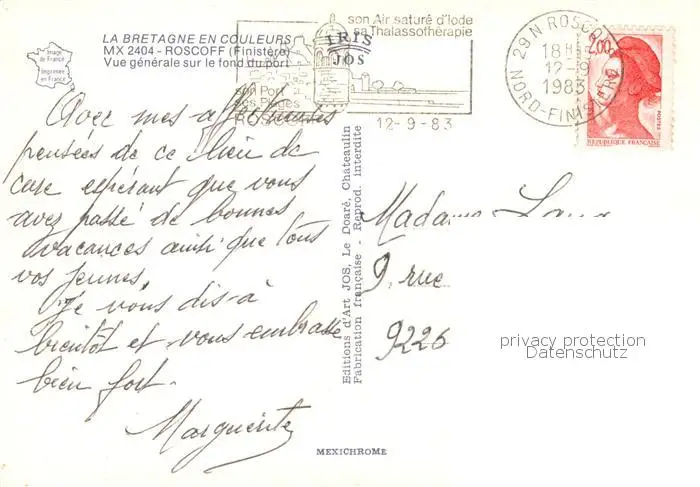 LA BRETAGNE EN COULEURS
MX 2404 - ROSCOFF (Finistère)
Vue générale sur le fond du port
Image de France
Imprimée en France
son Air saturé d'Iode
sa Thalassothérapie
IRIS
JOS
son Port
ses Plages
ROSCOFF
12-9-83
29 N ROSCOFF
18H
12-9
1983
NORD-FINISTERE
2,00
POSTES
REPUBLIQUE FRANÇAISE
Avec mes affectueuses
pensées de ce lieu de
cure espérant que vous
avez passé de bonnes
vacances ainsi que tous
vos jeunes.
Je vous dis-à
bientôt et vous embrasse
bien fort.
Marguerite
Editions d'Art JOS, Le Doaré, Chateaulin
Fabrication française - Reprod. interdite
Madame
9, rue
9226
privacy protection
Datenschutz
MEXICHROME